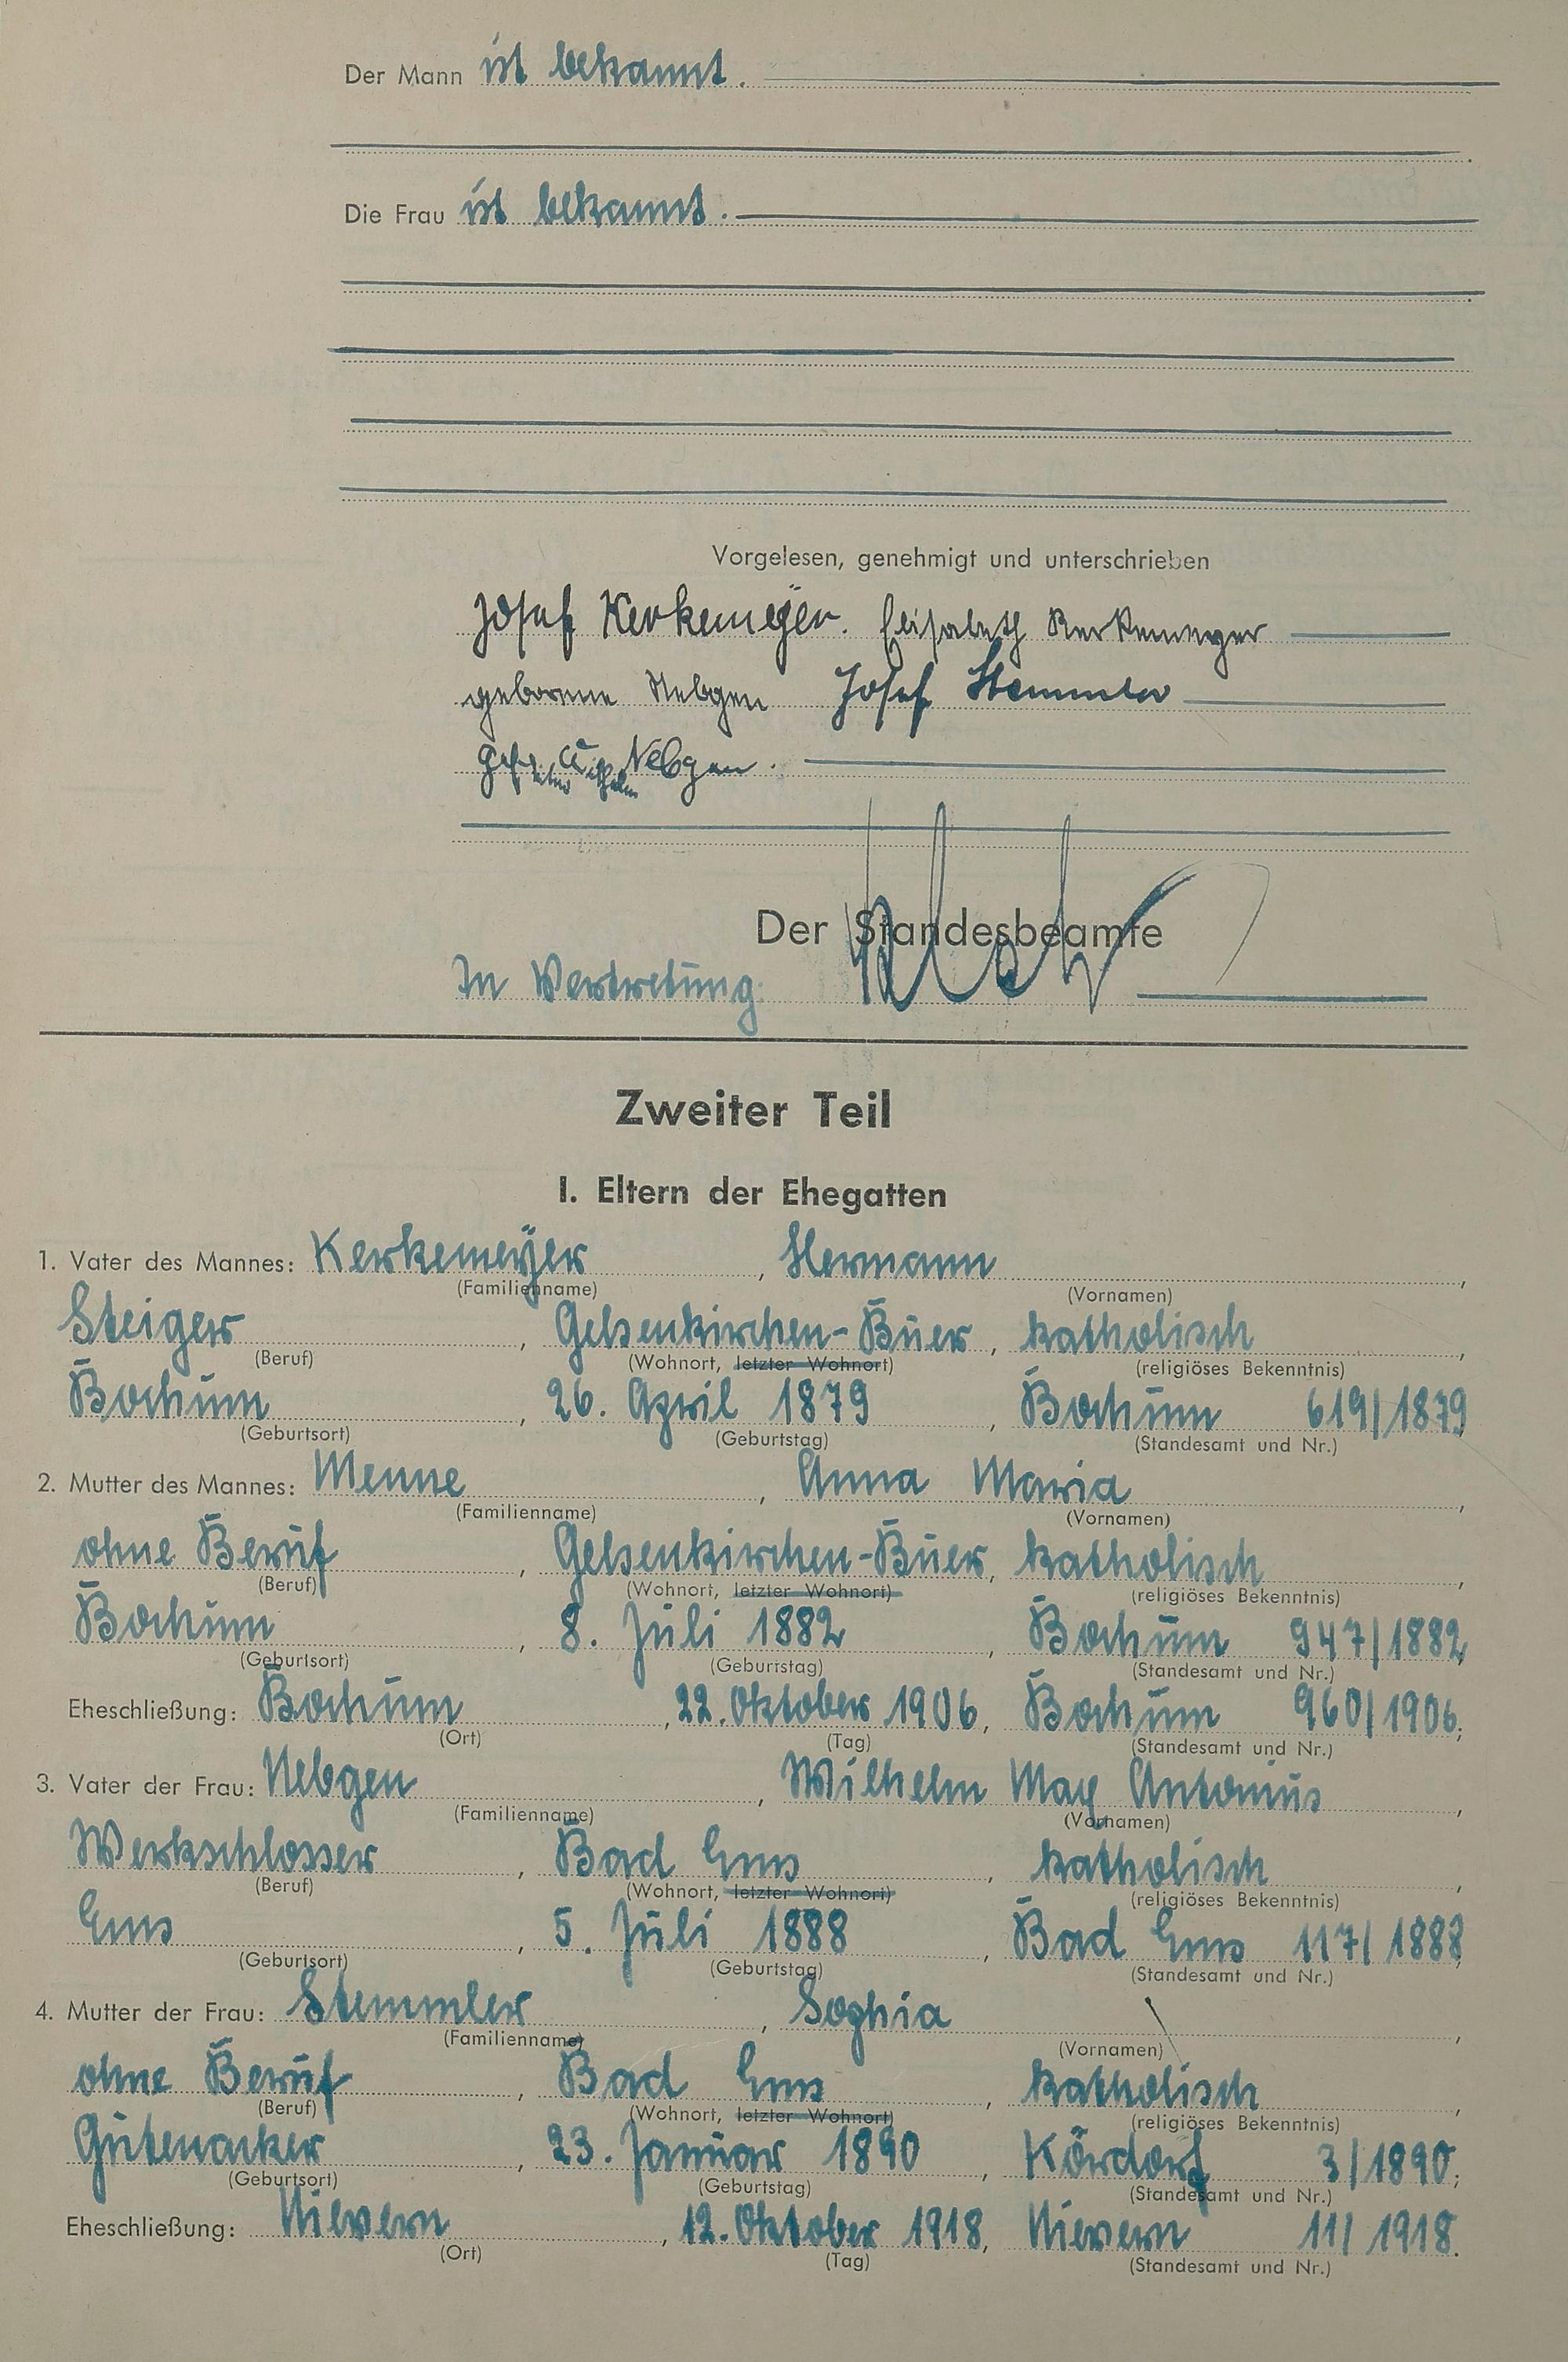 Der Mann ist bekannt.
Die Frau ist bekannt.
Vorgelesen, genehmigt und unterschrieben
Josef Kerkemeÿer. Elisabeth Kerkemeyer
geborene Nebgen Josef Stemmler
Nebgen.
Der Standesbeamte
In Vertretung:
Zweiter Teil
I. Eltern der Ehegatten
1. Vater des Mannes: Kerkemeÿer, Hermann,
(Familienname) (Vornamen)
Steiger, Gelsenkirchen-Buer, katholisch,
(Beruf) (Wohnort, letzter Wohnort) (religiöses Bekenntnis)
Bochum, 26. April 1879, Bochum 619/1879,
(Geburtsort) (Geburtstag) (Standesamt und Nr.)
2. Mutter des Mannes: Menne, Anna Maria,
(Familienname) (Vornamen)
ohne Beruf, Gelsenkirchen-Buer, katholisch,
(Beruf) (Wohnort, letzter Wohnort) (religiöses Bekenntnis)
Bochum, 8. Juli 1882, Bochum 947/1882,
(Geburtsort) (Geburtstag) (Standesamt und Nr.)
Eheschließung: Bochum, 22. Oktober 1906, Bochum 960/1906;
(Ort) (Tag) (Standesamt und Nr.)
3. Vater der Frau: Nebgen, Wilhelm Max Antonius,
(Familienname) (Vornamen)
Werkschlosser, Bad Ems, katholisch,
(Beruf) (Wohnort, letzter Wohnort) (religiöses Bekenntnis)
Ems, 5. Juli 1888, Bad Ems 117/1888,
(Geburtsort) (Geburtstag) (Standesamt und Nr.)
4. Mutter der Frau: Stemmler, Sophia,
(Familienname) (Vornamen)
ohne Beruf, Bad Ems, katholisch,
(Beruf) (Wohnort, letzter Wohnort) (religiöses Bekenntnis)
Gutenacker, 23. Januar 1890, Kördorf 3/1890;
(Geburtsort) (Geburtstag) (Standesamt und Nr.)
Eheschließung: Nievern, 12. Oktober 1918, Nievern 11/1918.
(Ort) (Tag) (Standesamt und Nr.)